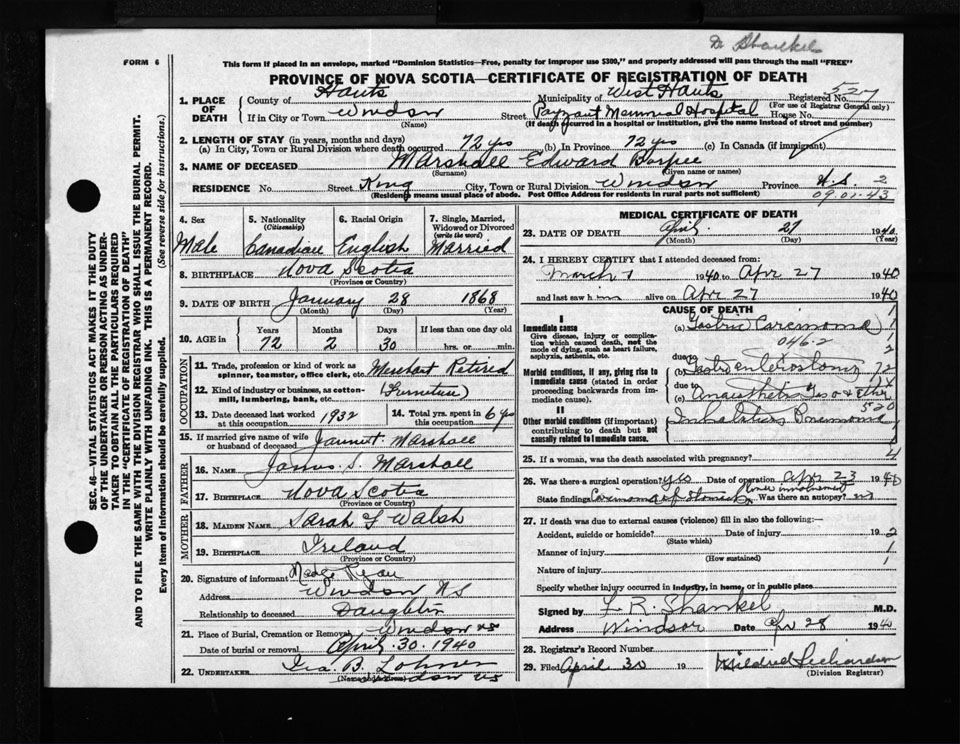 Dr Shankel
FORM 6
This form if placed in an envelope, marked "Dominion Statistics—Free, penalty for improper use $300," and properly addressed will pass through the mail "FREE"
PROVINCE OF NOVA SCOTIA—CERTIFICATE OF REGISTRATION OF DEATH
SEC. 46—VITAL STATISTICS ACT MAKES IT THE DUTY
OF THE UNDERTAKER OR PERSON ACTING AS UNDER-
TAKER TO OBTAIN ALL THE PARTICULARS REQUIRED
IN THE "CERTIFICATE OF REGISTRATION OF DEATH"
AND TO FILE THE SAME WITH THE DIVISION REGISTRAR WHO SHALL ISSUE THE BURIAL PERMIT.
WRITE PLAINLY WITH UNFADING INK. THIS IS A PERMANENT RECORD.
Every item of Information should be carefully supplied. (See reverse side for instructions.)
1. PLACE OF DEATH County of Hants Municipality of West Hants Registered No. 527
(For use of Registrar General only)
If in City or Town Windsor Street Payzant Memorial Hospital House No.
(Name) (If death occurred in a hospital or institution, give the name instead of street and number)
2. LENGTH OF STAY (in years, months and days)
(a) In City, Town or Rural Division where death occurred 72 yrs (b) In Province 72 yrs (c) In Canada (if immigrant)
3. NAME OF DECEASED Marshall Edward
(Surname) (Given name or names)
RESIDENCE No. Street King City, Town or Rural Division Windsor Province N.S. 2
(Residence means usual place of abode. Post Office Address for residents in rural parts not sufficient) 09.01.43
4. Sex 5. Nationality (Citizenship) 6. Racial Origin 7. Single, Married, Widowed or Divorced (write the word)
Male Canadian English Married
8. BIRTHPLACE Nova Scotia
(Province or Country)
9. DATE OF BIRTH January 28 1868
(Month) (Day) (Year)
10. AGE Years Months Days If less than one day old
72 2 30 hrs. or min.
OCCUPATION
11. Trade, profession or kind of work as spinner, teamster, office clerk, etc. Merchant Retired
12. Kind of industry or business, as cotton-mill, lumbering, bank, etc. (Furniture)
13. Date deceased last worked at this occupation 1932 14. Total yrs. spent in this occupation 6 yrs
15. If married give name of wife or husband of deceased Marshall
FATHER
16. NAME James S. Marshall
17. BIRTHPLACE Nova Scotia
MOTHER
18. MAIDEN NAME Sarah Walsh
19. BIRTHPLACE Ireland
(Province or Country)
20. Signature of informant Ryan
Address Windsor NS
Relationship to deceased Daughter
21. Place of Burial, Cremation or Removal Windsor NS
Date of burial or removal April 30 1940
22. UNDERTAKER Ira B. Lohnes
(Name and Address) Windsor NS
MEDICAL CERTIFICATE OF DEATH
23. DATE OF DEATH April 27 1940
(Month) (Day) (Year)
24. I HEREBY CERTIFY that I attended deceased from:
March 1 1940 to Apr 27 1940
and last saw him alive on Apr 27 1940
CAUSE OF DEATH
I
Immediate cause (a) Gastric Carcinoma
Give disease, injury or complication which caused death, not the mode of dying, such as heart failure, asphyxia, asthenia, etc. 046-2
due to
Morbid conditions, if any, giving rise to immediate cause (stated in order proceeding backwards from immediate cause). (b) Gastroenterostomy
due to
(c) Anaesthetic
520
II
Other morbid conditions (if important) contributing to death but not causally related to immediate cause. Inhalation Pneumonia
25. If a woman, was the death associated with pregnancy? 4
26. Was there a surgical operation? yes Date of operation Apr 23 1940
State findings Carcinoma of stomach Was there an autopsy? no
27. If death was due to external causes (violence) fill in also the following:—
Accident, suicide or homicide? Date of injury 19 2
(State which)
Manner of injury 1
(How sustained)
Nature of injury 1
Specify whether injury occurred in industry, in home, or in public place
Signed by L. R. Shankel M.D.
Address Windsor Date Apr 28 1940
28. Registrar's Record Number
29. Filed April 30 19 Mildred Richardson
(Division Registrar)